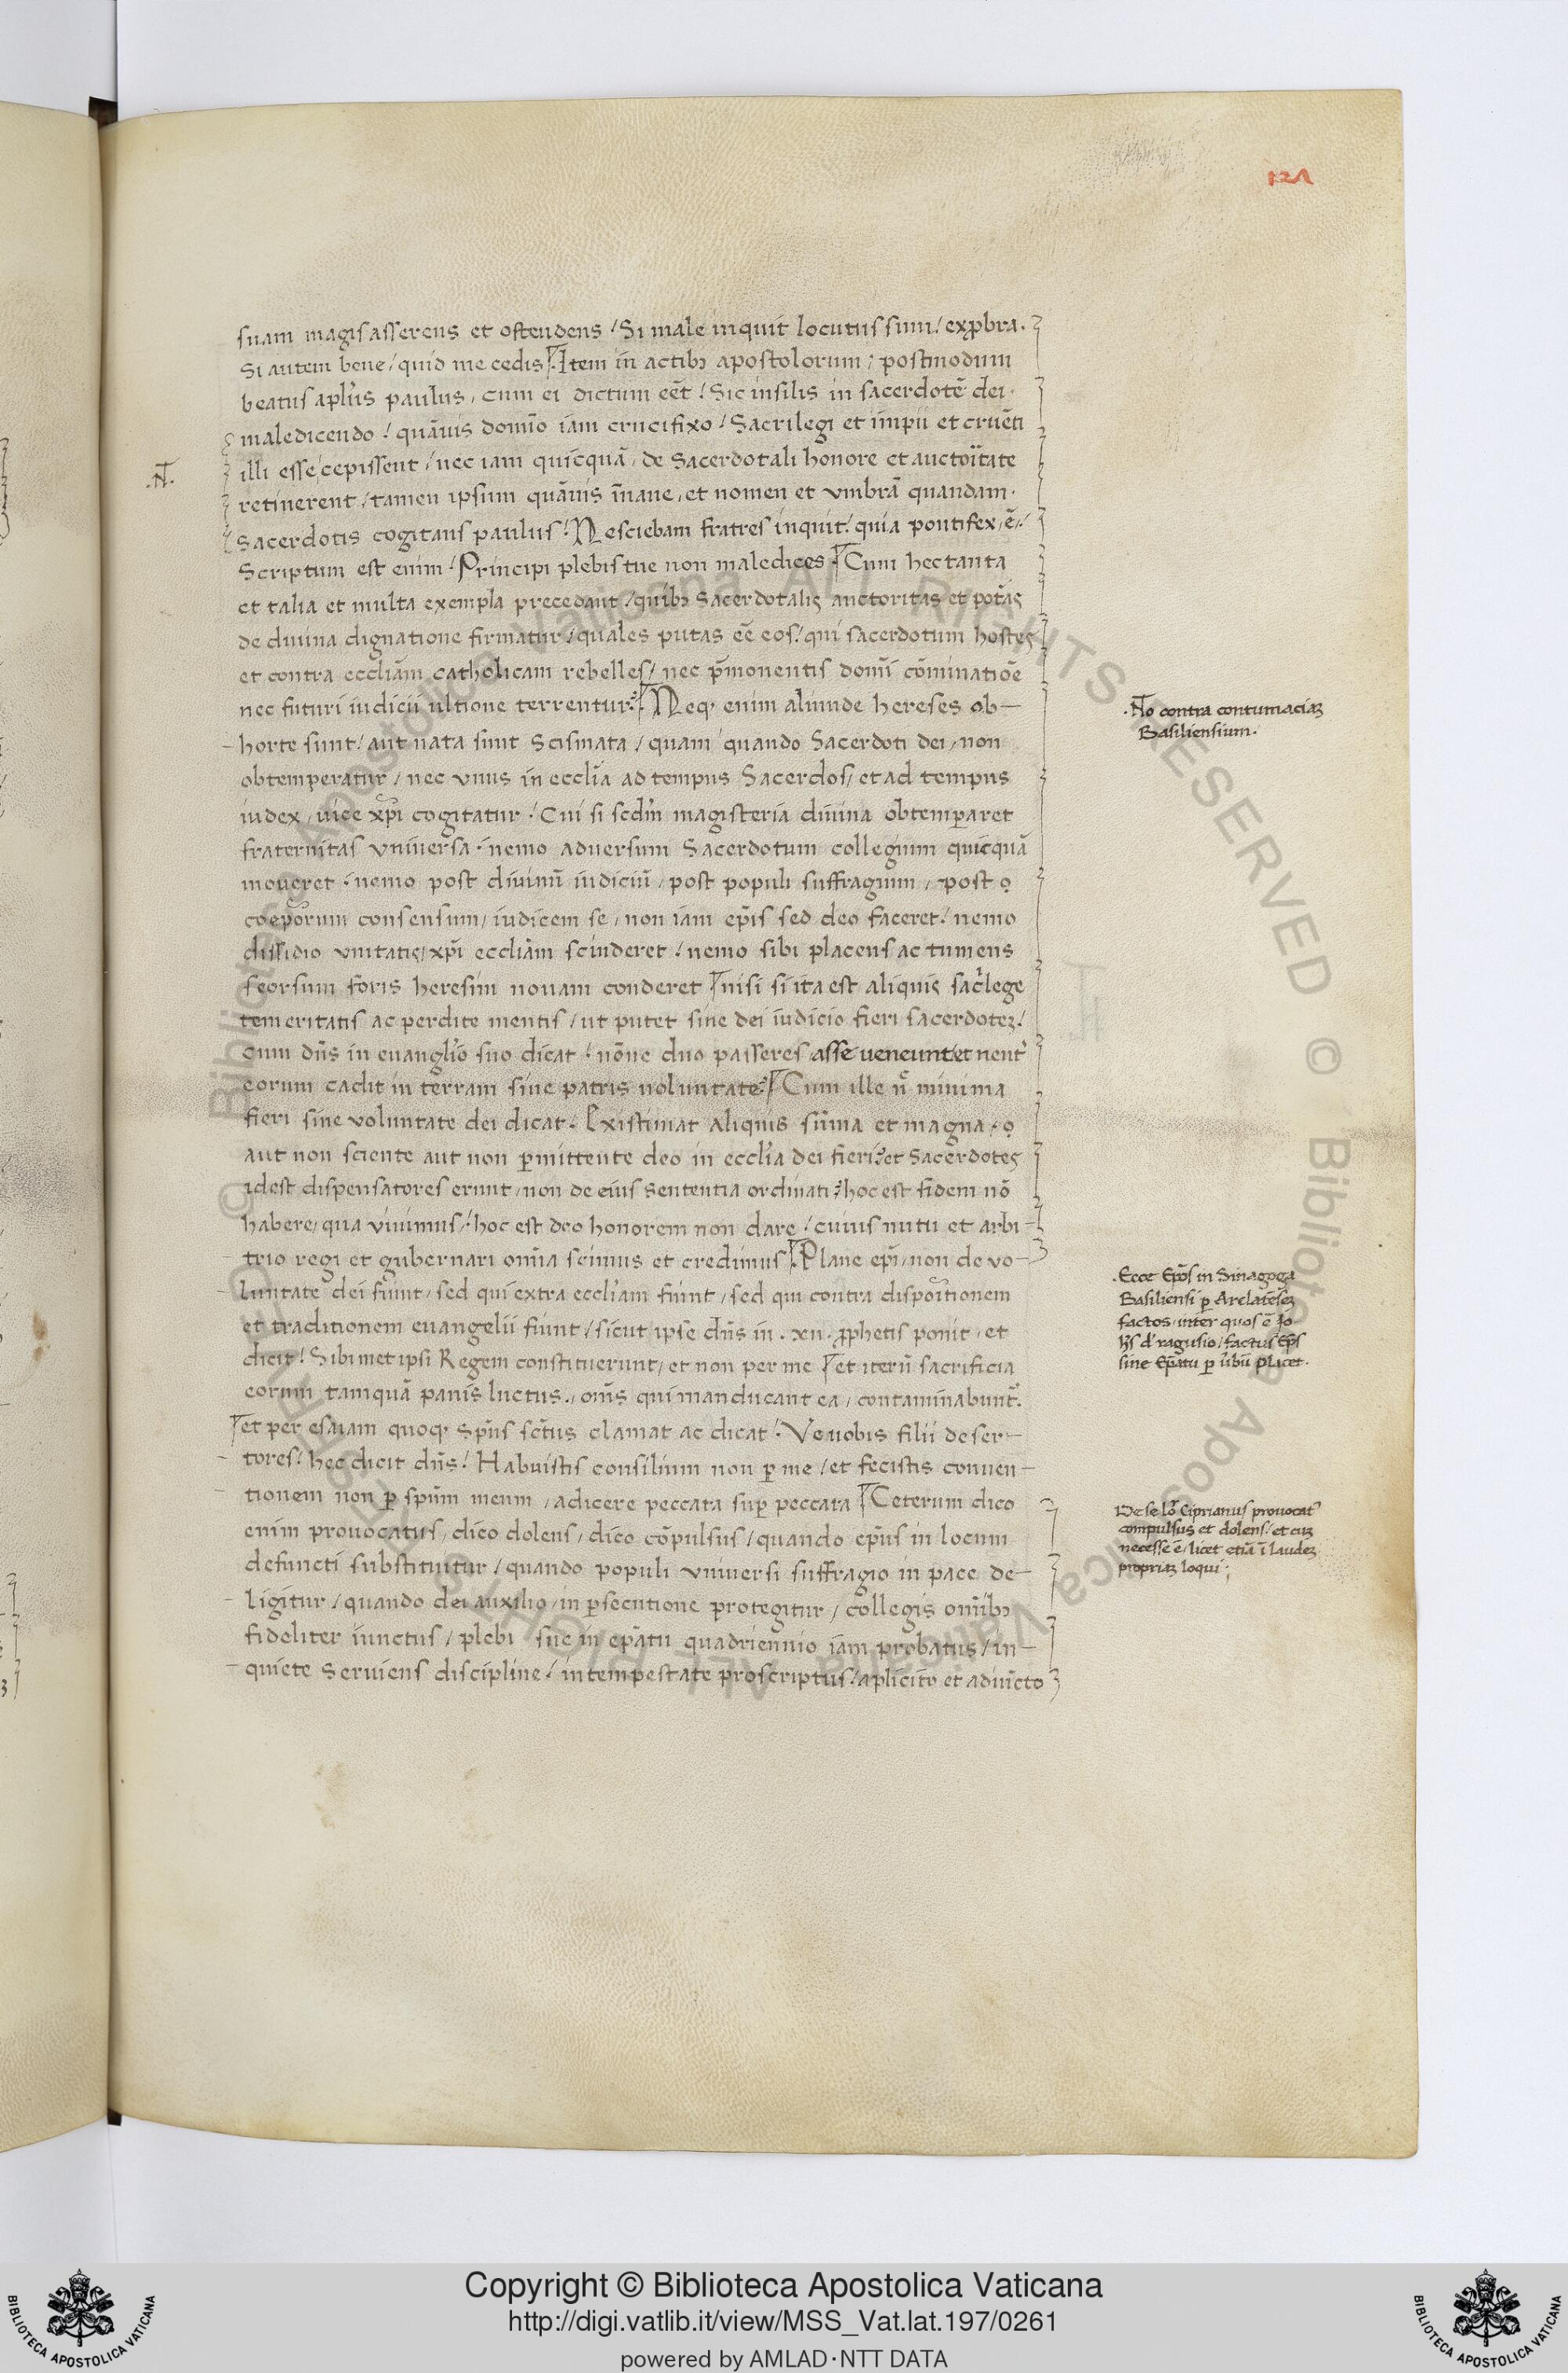 121
suam magis asserens et ostendens / Si male inquit locutus sum / exp̄bra·
Si autem bene / quid me cedis / Item in actibꝫ apostolorum / postmodum
beatus apl̓us paulus, cum ei dictum eēt / Sic insilis in sacerdotē dei·
maledicendo / quāuis domīo iam crucifixo / Sacrilegi et impii et cruēti
illi esse cepissent / nec iam quicquā, de Sacerdotali honore et auctoītate
retinerent / tamen ipsum quāuis īnane, et nomen et vmbrā quandam·
Sacerdotis cogitans paulus / Nesciebam fratres inquit / quia pontifex ē /
Scriptum est enim / Principi plebis tue non maledices / Cum hec tanta
et talia et multa exempla precedant / quibꝫ Sacerdotalis auctoritas et pot̄as
de diuina dignatione firmatur / quales putas eē eos / qui sacerdotum hostes
et contra eccl̓iam catholicam rebelles / nec p̄monentis domī cōminatiōe
nec futuri iudicii ultione terrentur / Neqꝫ enim aliunde hereses ob-
horte sunt / aut nata sunt scismata / quam quando Sacerdoti dei, non
obtemperatur / nec vnus in eccl̓ia ad tempus Sacerdos / et ad tempus
iudex, uice xp̄i cogitatur / Cui si scdm̄ magisteria diuina obtemp̄aret
fraternitas vniuersa · nemo aduersum Sacerdotum collegium quicquā
moueret · nemo post diuinū iudiciū, post populi suffragium, post
coep̄orum consensum, iudicem se, non iam ep̄is sed deo faceret / nemo
dissidio vnitatis xp̄i eccl̓iam scinderet / nemo sibi placens ac tumens
seorsum foris heresim nouam conderet / nisi si ita est aliquis sac̓lege
temeritatis ac perdite mentis / ut putet sine dei iudicio fieri sacerdoteꝫ /
cum dn̄s in euangl̓io suo dicat / nōne duo passeres asse ueneunt et neut̓
eorum cadit in terram sine patris uoluntate / Cum ille n̄ minima
fieri sine voluntate dei dicat / Existimat aliquis sūma et magna,
aut non sciente aut non p̄mittente deo in eccl̓ia dei fieri / et Sacerdotes
idest dispensatores erunt, non de eius sententia ordinati / hoc est fidem nō
habere, qua viuimus / hoc est deo honorem non dare / cuius nutu et arbi-
trio regi et gubernari omīa scimus et credimus / Plane ep̄i, non de vo-
luntate dei fiunt, sed qui extra eccl̓iam fiunt, sed qui contra dispoītionem
et traditionem euangelii fiunt / sicut ipse dn̄s in · xii · ꝓphetis ponit, et
dicit / Sibimet ipsi Regem constituerunt, et non per me / et iterū sacrificia
eorum tamquā panis luctus, omīs qui manducant ea, contaminabunt̓
et per esaiam quoqꝫ spūs sctūs clamat ac dicat / Ve uobis filii deser-
tores / hec dicit dn̄s / Habuistis consilium non p̄ me / et fecistis conuen-
tionem non p̄ spūm meum, adicere peccata sup̄ peccata / Ceterum dico
enim prouocatus, dico dolens, dico cōpulsus / quando ep̄us in locum
defuncti substituitur / quando populi vniuersi suffragio in pace de-
ligitur / quando dei auxilio, in p̄secutione protegitur, collegis omībꝫ
fideliter iunctus / plebi sue in ep̄atu quadriennio iam probatus / in
quiete seruiens discipline / in tempestate proscriptus / aplicito et adiuīcto
·N̄·
·N̄o contra contumaciaꝫ
Basiliensium·
·Ecce Ep̄os in Sinagoga
Basiliensi p̄ Arelateseꝫ
factos, inter quos ē Jo
hēs d̓ ragusio / factus Ep̄s
sine Ep̄atu p̄ ūbū placet·
De se lō Ciprianus prouocat̓
compulsus et dolens / et cuꝫ
necesse ē / licet etiā ī laudeꝫ
propriaꝫ loqui
Copyright © Biblioteca Apostolica Vaticana
http://digi.vatlib.it/view/MSS_Vat.lat.197/0261
powered by AMLAD·NTT DATA
BIBLIOTECA APOSTOLICA VATICANA
BIBLIOTECA APOSTOLICA VATICANA
© Biblioteca Apostolica Vaticana ALL RIGHTS RESERVED © Biblioteca Apostolica Vaticana ALL RIGHTS RESERVED